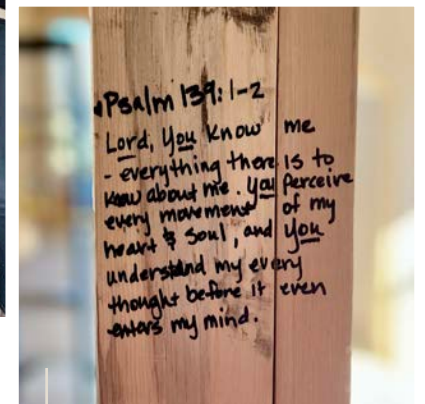 Psalm 139:1-2
Lord, you know me
- everything there is to
know about me. You perceive
every movement of my
heart & soul, and you
understand my every
thought before it even
enters my mind.